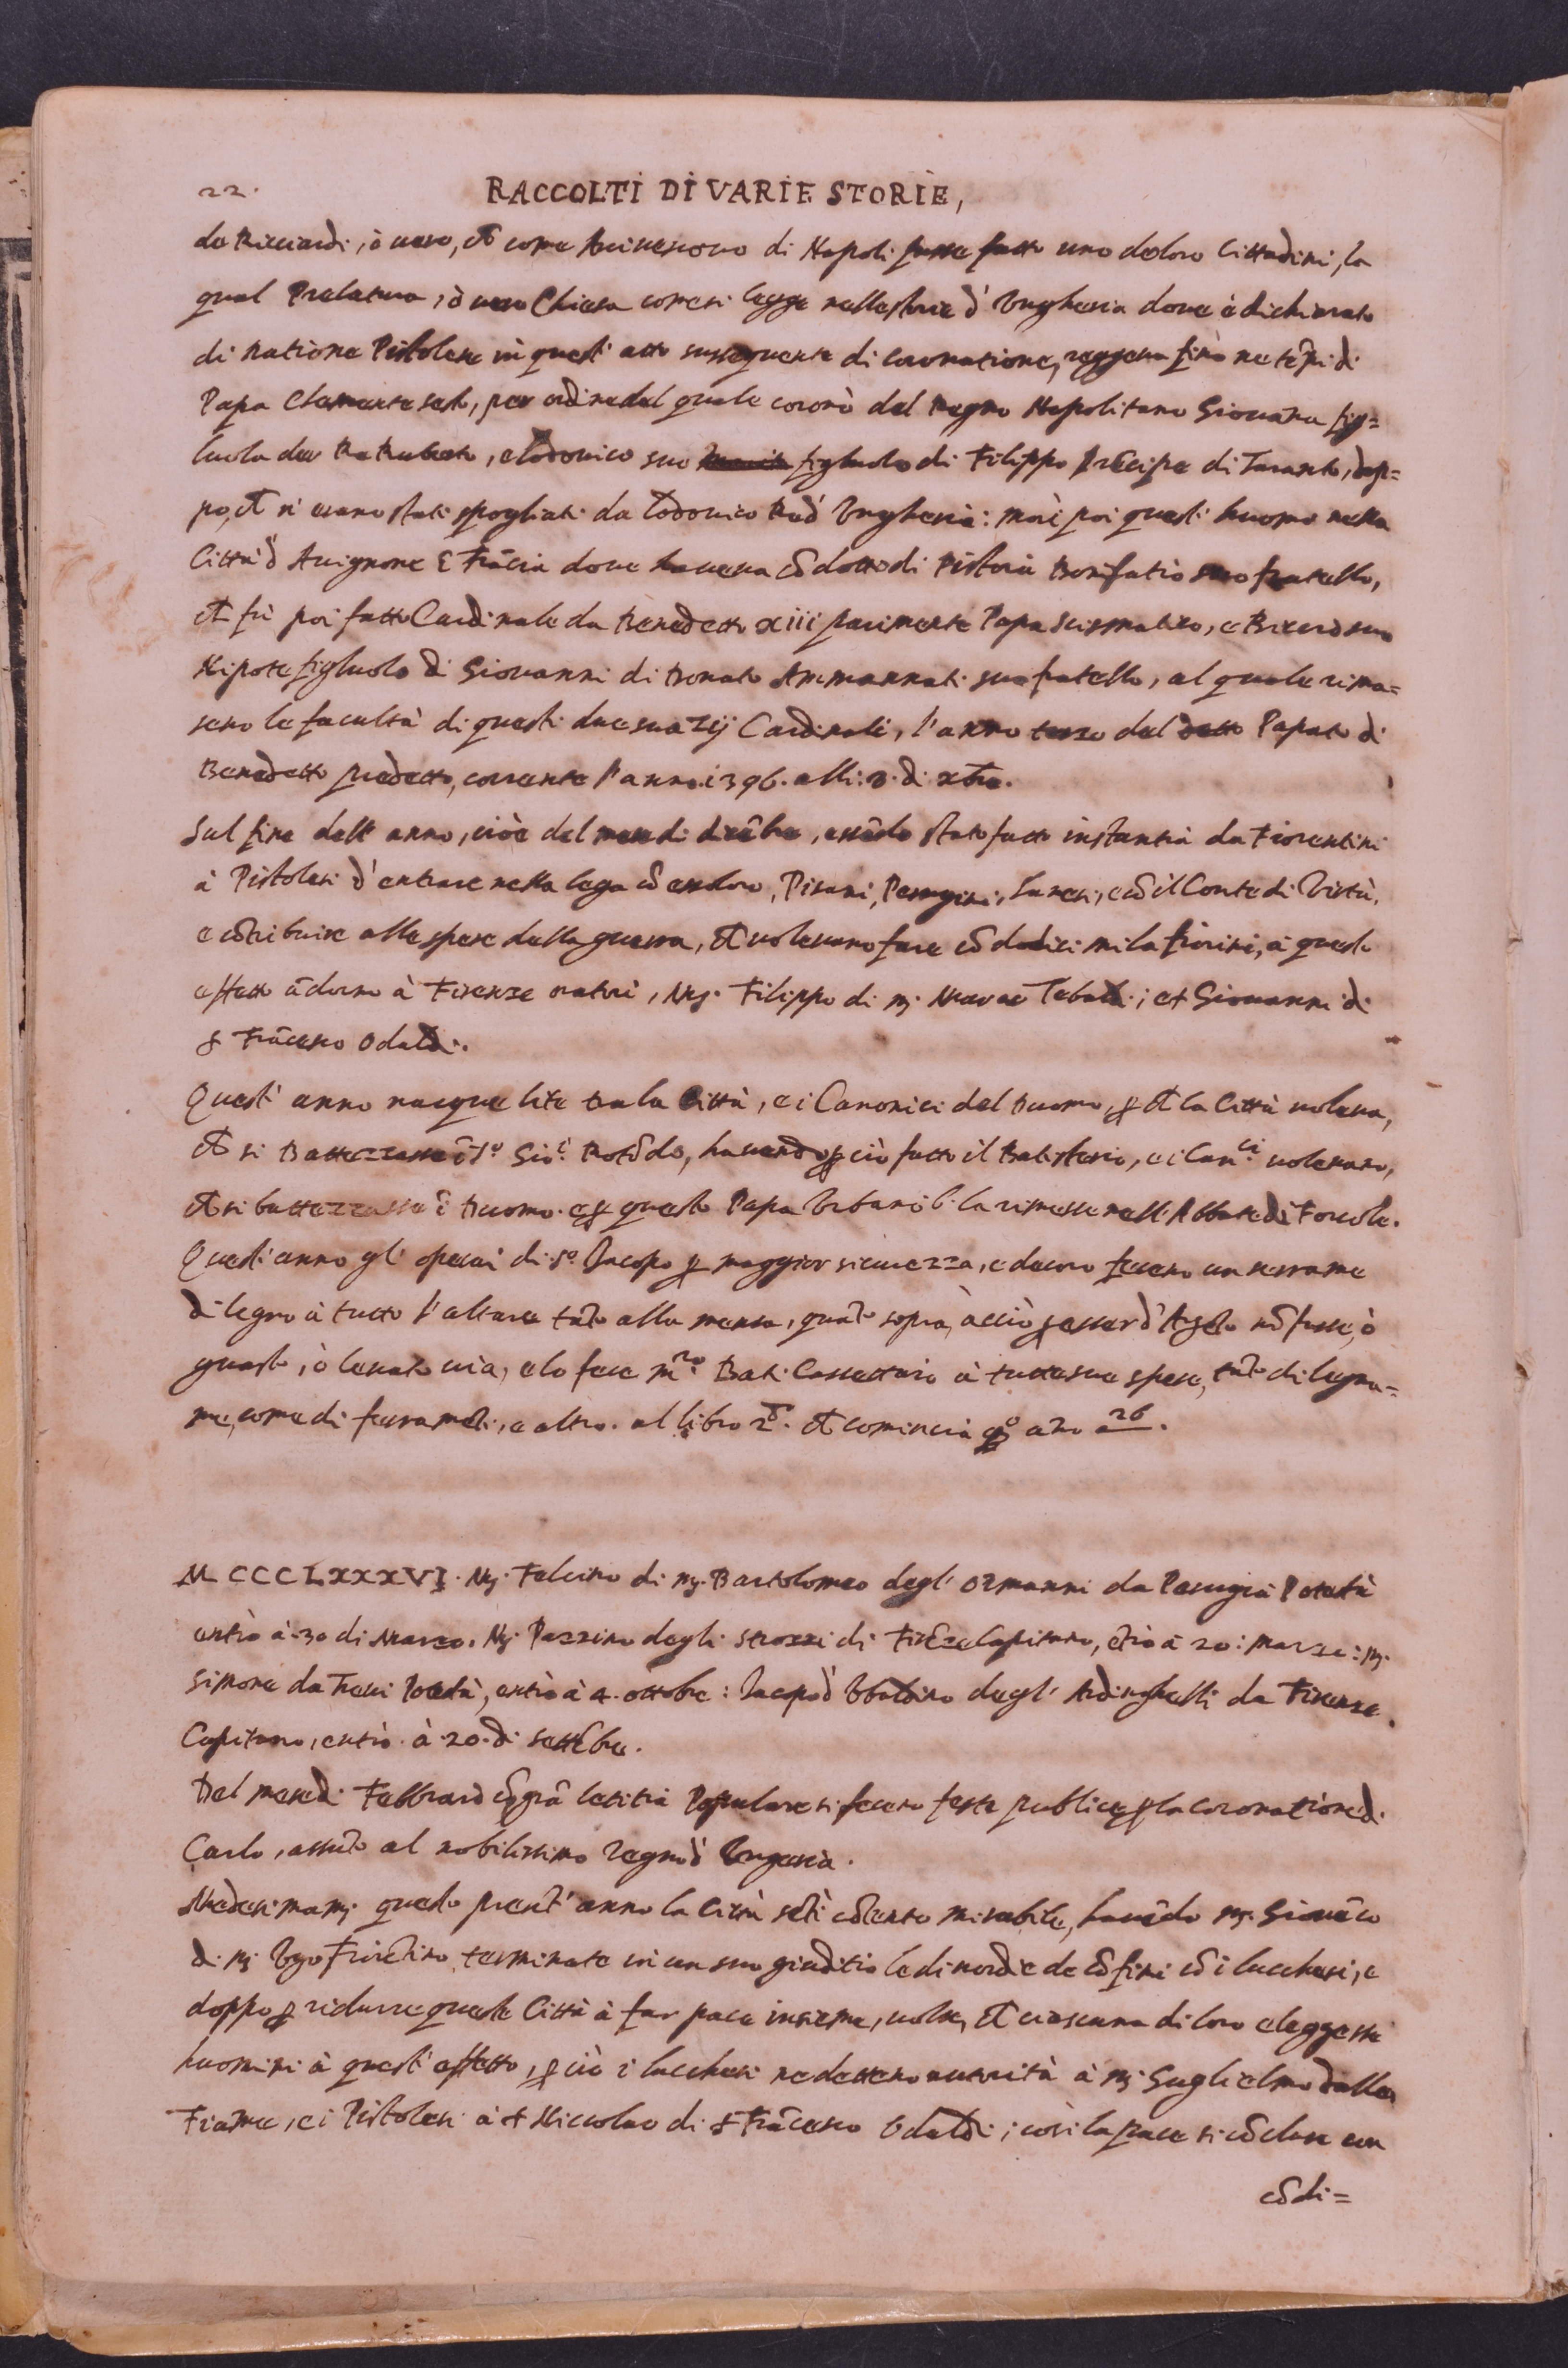 22.
RACCOLTI DI VARIE STORIE,
da Ricciardi, ò uero, ch̃ come Arciuescouo di Napoli fusse fatto uno deloro Cittadini, la
qual Prelatura, ò uero Chiesa comesi legge nellestorie d'Ungheria doue è dichiarato
di natione Pistolese in questi atto sussequente di coronatione, reggeua fino ne tẽpi di
Papa Clemente sesto, per ordinedel quale coronò del Regno Napolitano Giouãna fig=
luola del Re Ruberto, e Lodouico suo figluolo di Filippo Prẽcipe di Taranto, dop=
po, ch̃ n'erano stati spogliati da Lodouico Re d'Ungheria: morì poi questi huomo nella
Città d'Auignone ĩ Frãcia doue haueua cõdotto di Pistoia Bonifatio suo fratello,
ch̃ fù poi fatto Cardinale da Benedetto xiii parimente Papa Scismatico, e suo
Nipote figluolo di Giovanni di Donato Ammannati suo fratello, al quale rima=
sero le facultà di questi due sua Zij Cardinali, l'anno terzo del detto Papato di
Benedetto predetto, corrente l'anno i396. alli: 8. di xbre.
Sul fine dell'anno, cioè del mese di dicẽbre, essẽdo stato fatto instantia da Fiorentini
à Pistolesi d'entrare nella lega cõ essoloro, Pisani, Perugini, Sanesi, e cõ il Conte di Virtù,
e cõtribuire alle spese della guerra, ch̃ uoleuano fare cõ dodici mila fiorini, à questo
effetto ãdorno à Firenze oratori, Mẹ. Filippo di mẹ. Tebaldi; et Giouanni di
ẛ Frãcesco Odaldi.
Quest'anno nacque lite tra la Città, e i Canonici del Duomo, ꝑ ch̃ la Città uoleua,
ch̃ si Battezzasse ĩ S.º Gio: Rotõdo, hauendo ꝑ ciò fatto il Batisterio, e i Can.ci uoleuano,
ch̃ si battezzasse ĩ Duomo. e ꝑ questo Papa Urbano 6. la rimesse nell'Abbate di Forcole.
Quest'anno gl'operai di S.º Jacopo ꝑ maggior sicurezza, e decoro fecero un serrame
di legno à tutto l'altare tãto alla mensa, quãto sopra, acciò ꝑ esser d'Argẽto nõ fusse, ò
guasto, ò leuato uia, e lo fece m.ro Bat. Cassettaio à tutte sue spese, tãto di legna=
me, come di ferramẽti, e altro. al libro ch̃ comincia q.º año a 26.
MCCCLXXXVI. Mẹ. Felcino di mẹ. Bartolomeo degl'Ormanni da Perugia Potestà
entrò à 30 di Marzo. Mẹ. Pazzino degli Strozzi di Firẽze Capitano, ẽtrò à 20: Marzo: mẹ.
Simone da Treui Potestà, entrò à 4. ottobre: Jacopo d'Ubaldino degl'Ardinghelli da Firenze
Capitano, entrò à 20. di Settẽbre.
Del mese di Febbraio cõ grã letitia Populare si fecero feste publiche ꝑ la coronatione di
Carlo, assũto al nobilissimo regno d'Ungeria.
Medesimamẹ. questo presẽt'anno la Città sẽtì cõtento mirabile, hauẽdo mẹ. Giouãco
di mẹ. Ugo Fiorẽtino terminate in un suo giuditio le discordie de cõfini cõ i Lucchesi, e
doppo ꝑ ridurre queste Città à far pace insieme, uolse, ch̃ ciascuna di loro eleggessi
huomini à quest'effetto, ꝑ ciò i Lucchesi ne dettero autorità à mẹ. Guglielmo dalla
Fiãme, e i Pistolesi à ẛ Niccolao di ẛ Frãcesco Odaldi; cosi la pace si cõcluse con
cõdi=